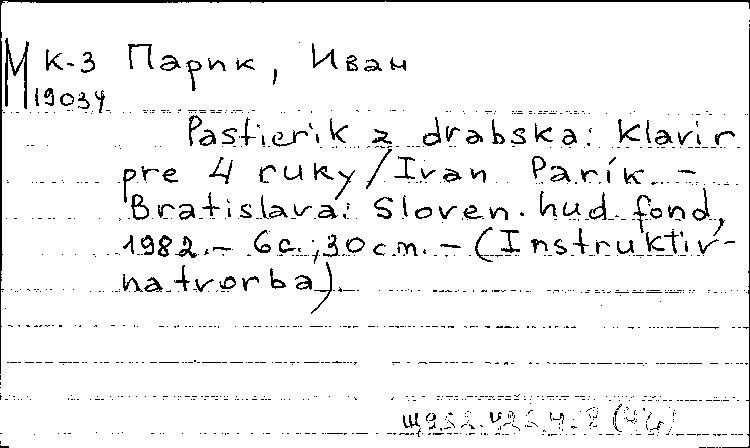 М К-3 Парик, Иван
19034
Pastierik z drabska: Klavir
pre 4 ruky/Ivan Parík. –
Bratislava: Sloven. hud fond,
1982. – 6с.; 30 cm. – (Instruktiv-
na tvorba).